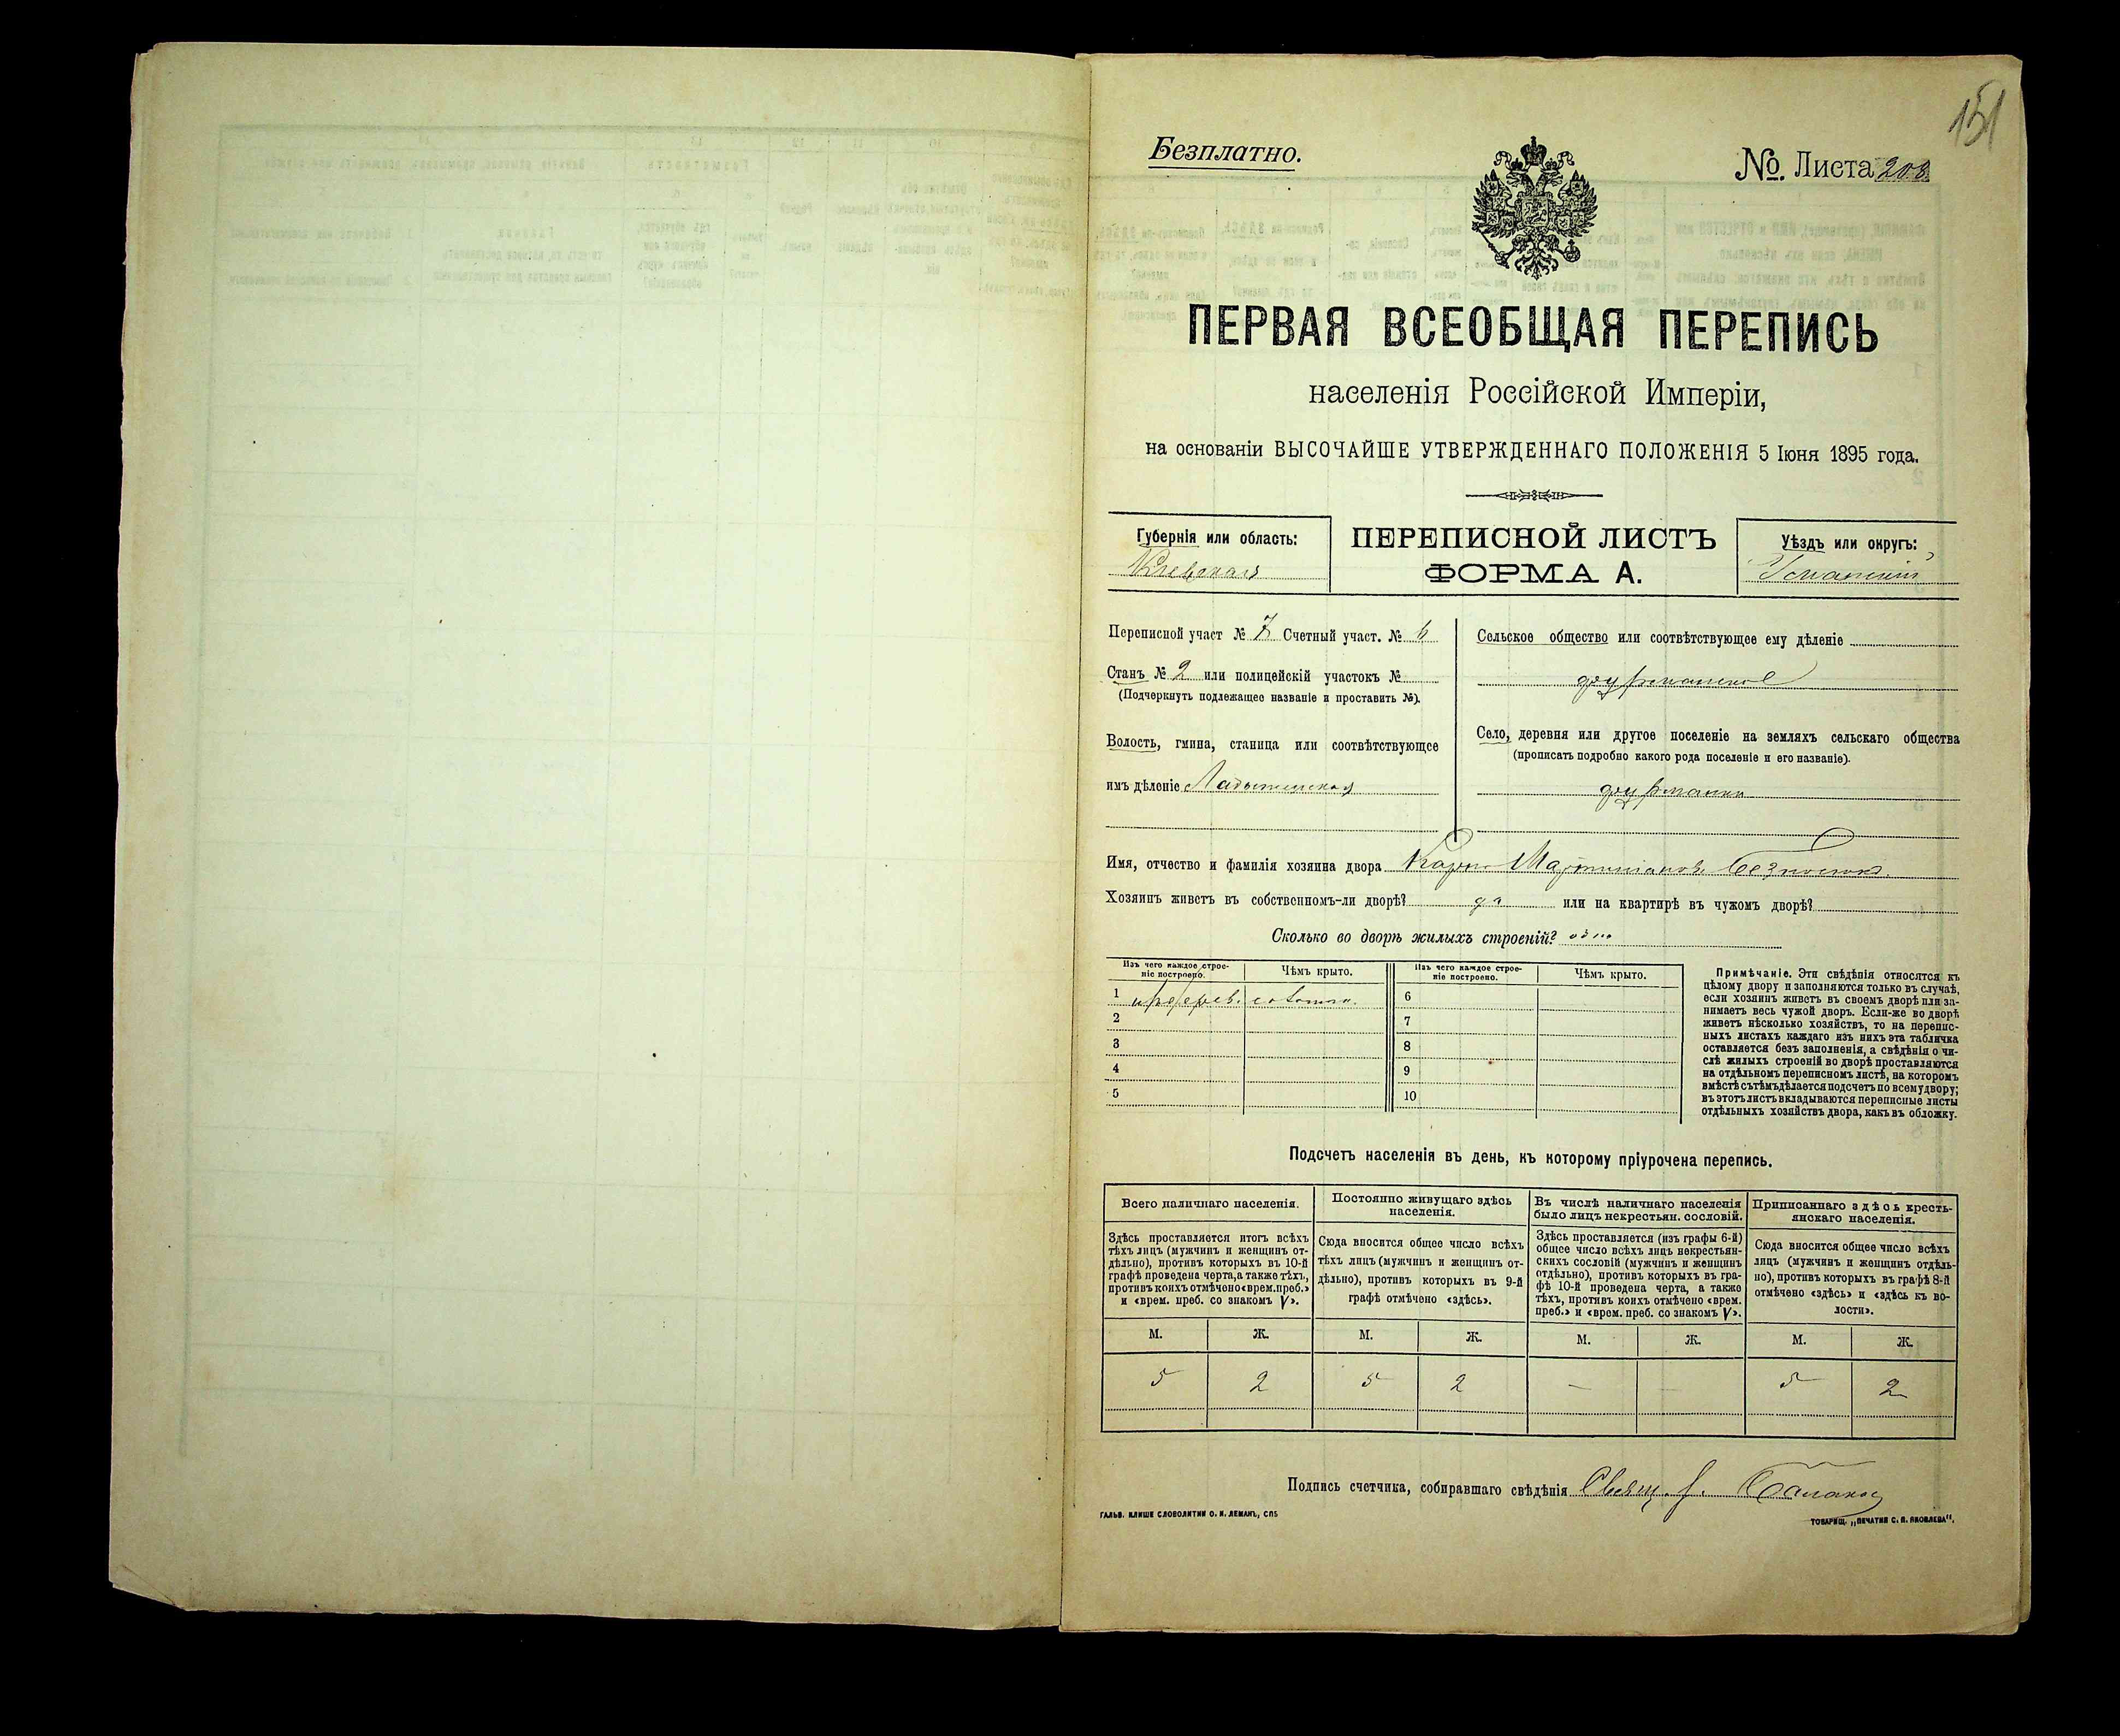 151
Безплатно.
№ Листа 208
ПЕРВАЯ ВСЕОБЩАЯ ПЕРЕПИСЬ
населенія Россійской Имперіи,
на основаніи ВЫСОЧАЙШЕ УТВЕРЖДЕННАГО ПОЛОЖЕНІЯ 5 Іюня 1895 года.
Губернія или область:
Кіевская
ПЕРЕПИСНОЙ ЛИСТЪ
ФОРМА А.
Уѣздъ или округъ:
Уманскій
Переписной участ № 7 Счетный участ. № 6
Станъ № 2 или полицейскій участокъ №
(Подчеркнуть подлежащее названіе и проставить №).
Волость, гмина, станица или соотвѣтствующее
имъ дѣленіе Ладыжинская
Сельское общество или соотвѣтствующее ему дѣленіе
фурманское
Село, деревня или другое поселеніе на земляхъ сельскаго общества
(прописать подробно какого рода поселеніе и его названіе).
фурманки
Имя, отчество и фамилія хозяина двора Карпъ
Хозяинъ живетъ въ собственномъ-ли дворѣ? да или на квартирѣ въ чужомъ дворѣ?
Сколько во дворѣ жилыхъ строеній? одно
Изъ чего каждое строе-
ніе построено.
Чѣмъ крыто.
Изъ чего каждое строе-
ніе построено.
Чѣмъ крыто.
1 соломою.
2
3
4
5
6
7
8
9
10
Примѣчаніе. Эти свѣдѣнія относятся къ
цѣлому двору и заполняются только въ случаѣ,
если хозяинъ живетъ въ своемъ дворѣ или за-
нимаетъ весь чужой дворъ. Если-же во дворѣ
живетъ нѣсколько хозяйствъ, то на перепис-
ныхъ листахъ каждаго изъ нихъ эта табличка
оставляется безъ заполненія, а свѣдѣнія о чи-
слѣ жилыхъ строеній во дворѣ проставляются
на отдѣльномъ переписномъ листѣ, на которомъ
вмѣстѣ съ тѣмъ дѣлается подсчетъ по всему двору;
въ этотъ листъ вкладываются переписные листы
отдѣльныхъ хозяйствъ двора, какъ въ обложку.
Подсчетъ населенія въ день, къ которому пріурочена перепись.
Всего наличнаго населенія.
Здѣсь проставляется итогъ всѣхъ
тѣхъ лицъ (мужчинъ и женщинъ от-
дѣльно), противъ которыхъ въ 10-й
графѣ проведена черта, а также тѣхъ,
противъ коихъ отмѣчено «врем. преб.»
и «врем. преб. со знакомъ V».
Постоянно живущаго здѣсь
населенія.
Сюда вносится общее число всѣхъ
тѣхъ лицъ (мужчинъ и женщинъ от-
дѣльно), противъ которыхъ въ 9-й
графѣ отмѣчено «здѣсь».
Въ числѣ наличнаго населенія
было лицъ некрестьян. сословій.
Здѣсь проставляется (изъ графы 6-й)
общее число всѣхъ лицъ некрестьян-
скихъ сословій (мужчинъ и женщинъ
отдѣльно), противъ которыхъ въ гра-
фѣ 10-й проведена черта, а также
тѣхъ, противъ коихъ отмѣчено «врем.
преб.» и «врем. преб. со знакомъ V».
Приписаннаго здѣсь кресть-
янскаго населенія.
Сюда вносится общее число всѣхъ
лицъ (мужчинъ и женщинъ отдѣль-
но), противъ которыхъ въ графѣ 8-й
отмѣчено «здѣсь» и «здѣсь къ во-
лости».
М. Ж. М. Ж. М. Ж. М. Ж.
5 2 5 2 — — 5 2
Подпись счетчика, собиравшаго свѣдѣнія Свящ.
ГАЛЬВ. КЛИШЕ СЛОВОЛИТНИ О. И. ЛЕМАНЪ, СПБ
ТОВАРИЩ. „ПЕЧАТНЯ С. П. ЯКОВЛЕВА“.